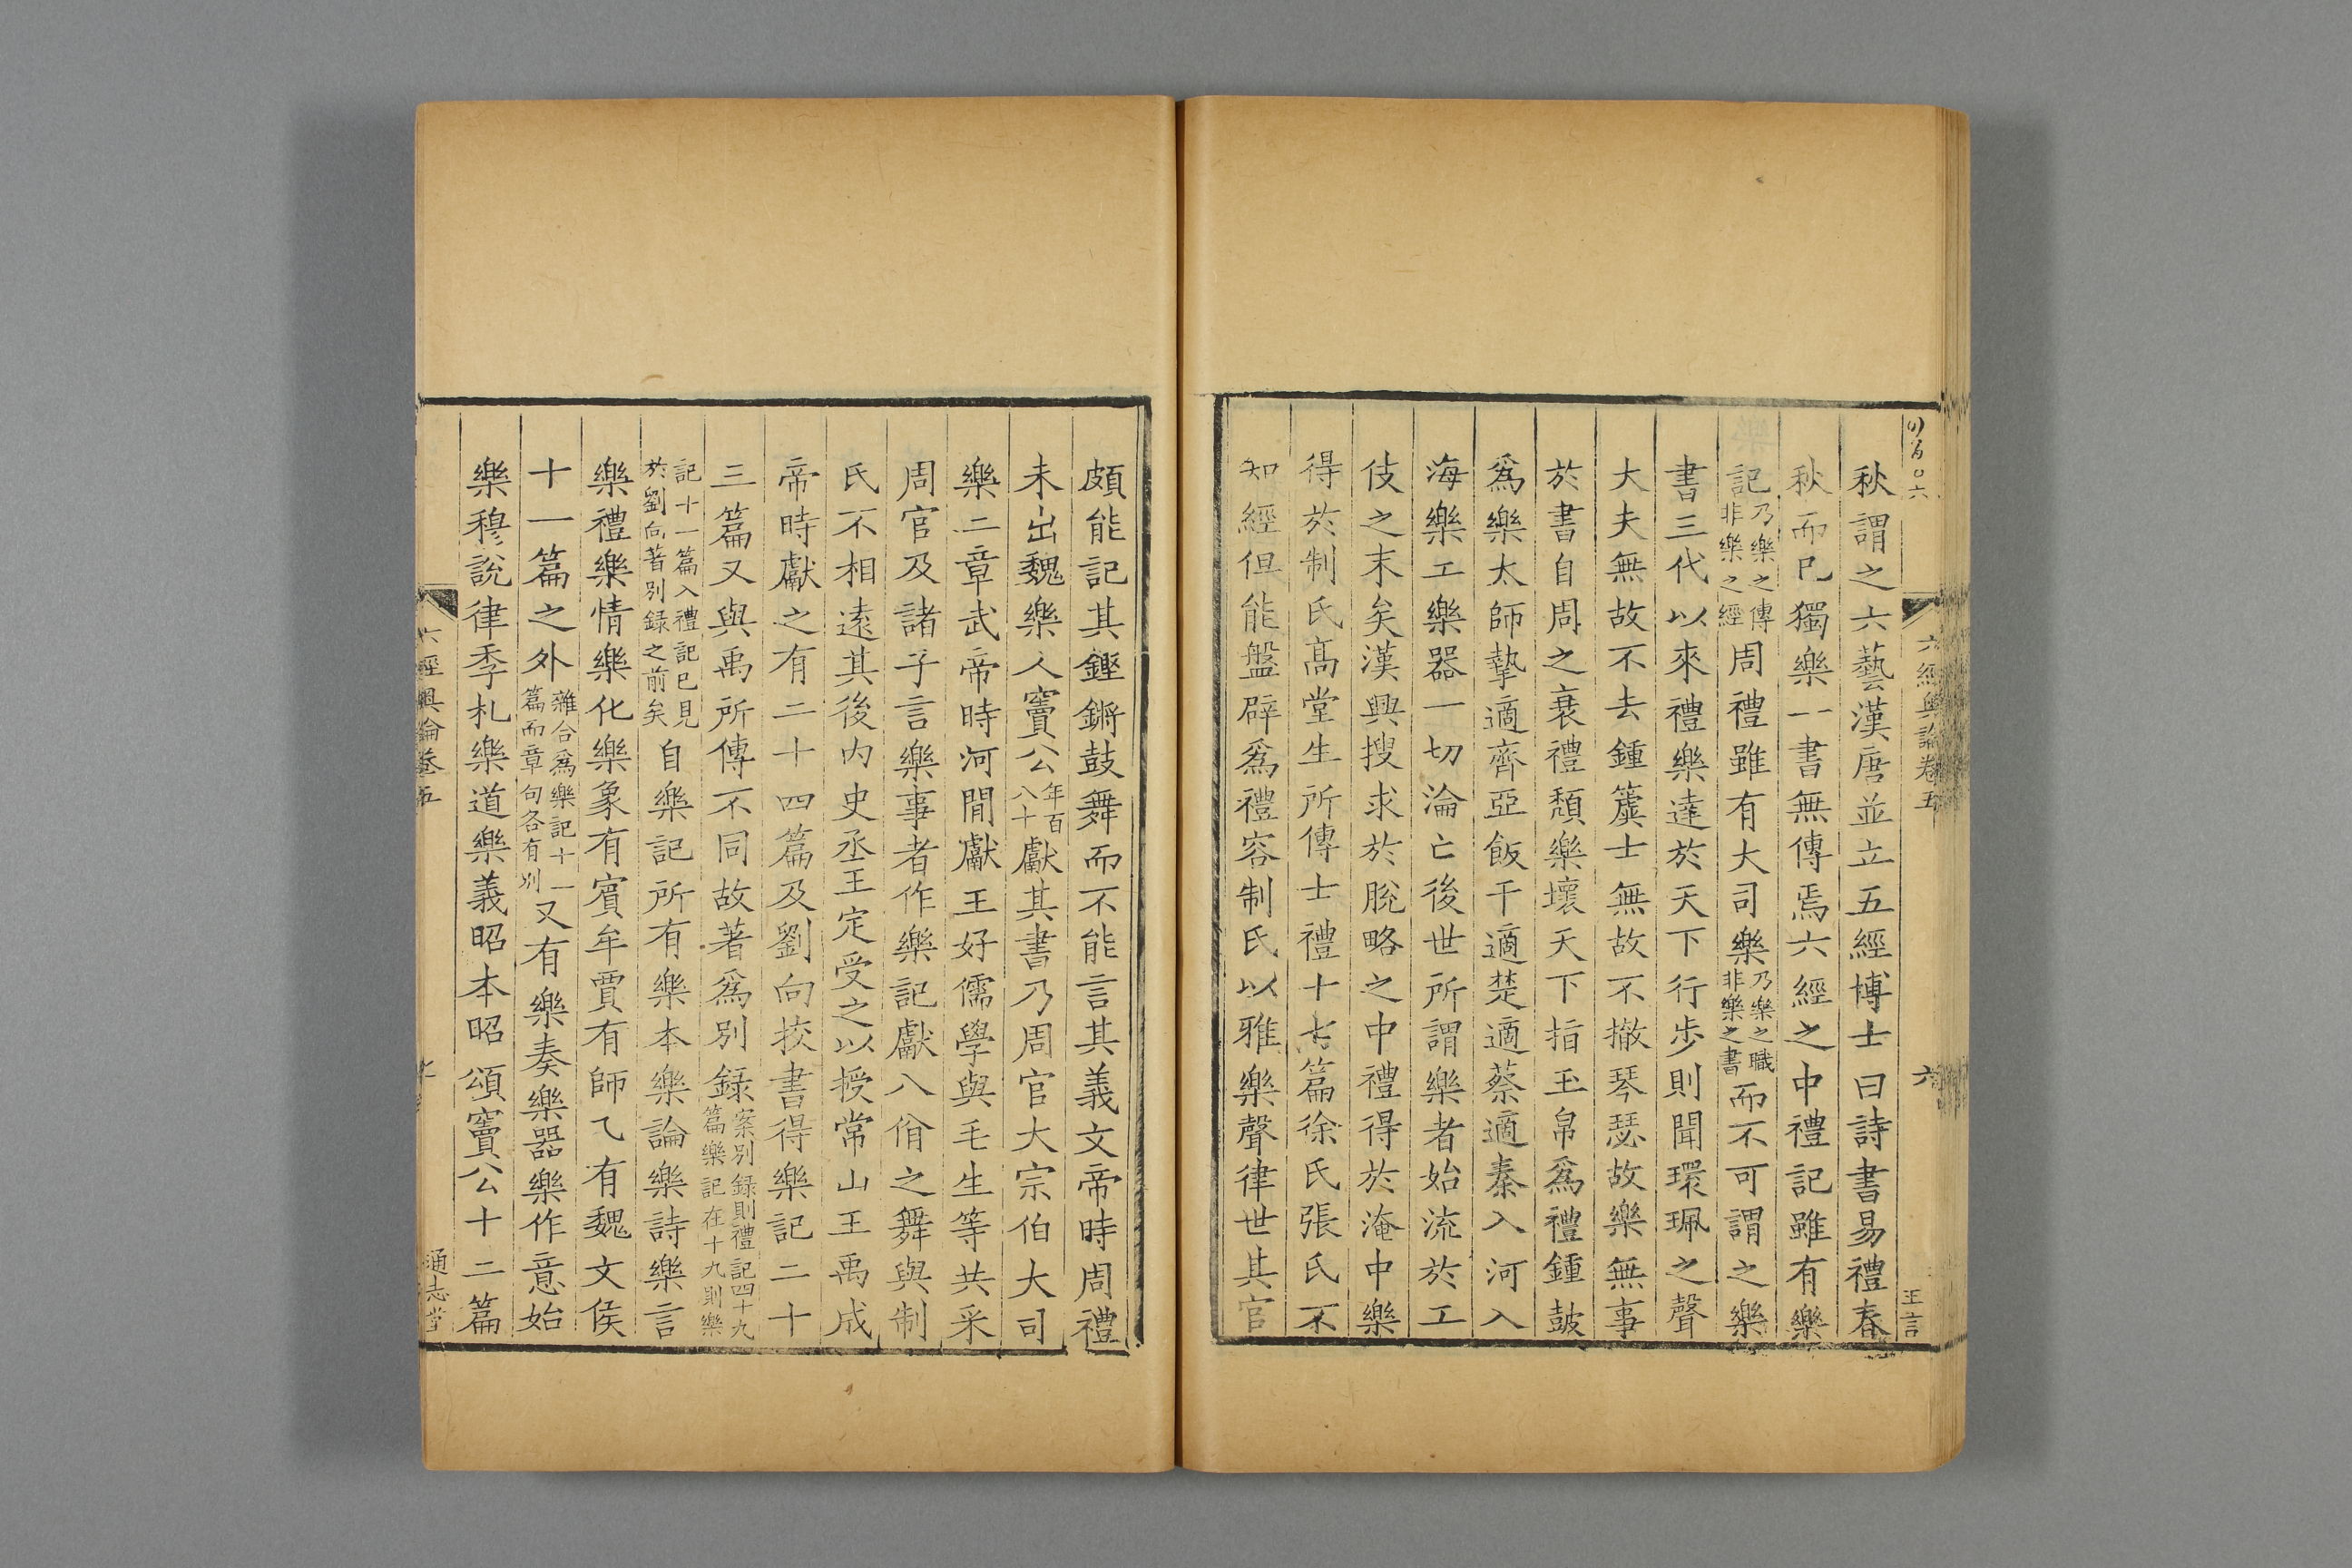 六經奥論卷五
六
王言
秋謂之六藝漢唐並立五經博士曰詩書易禮春
秋而已獨樂一書無傳焉六經之中禮記雖有樂
記乃樂之傳非樂之經周禮雖有大司樂乃樂之職非樂之書而不可謂之樂
書三代以來禮樂達於天下行步則聞環珮之聲
大夫無故不去鍾簴士無故不撤琴瑟故樂無事
於書自周之衰禮頹樂壞天下指玉帛爲禮鍾鼓
爲樂太師摯適齊亞飯干適楚適蔡適秦入河入
海樂工樂器一切淪亡後世所謂樂者始流於工
伎之末矣漢興搜求於脫略之中禮得於淹中樂
得於制氏高堂生所傳士禮十七篇徐氏張氏不
知經但能盤辟爲禮容制氏以雅樂聲律世其官
頗能記其鏗鏘鼓舞而不能言其義文帝時周禮
未出魏樂人竇公年百八十獻其書乃周官大宗伯大司
樂二章武帝時河間獻王好儒學與毛生等共采
周官及諸子言樂事者作樂記獻八佾之舞與制
氏不相遠其後內史丞王定受之以授常山王禹成
帝時獻之有二十四篇及劉向挍書得樂記二十
三篇又與禹所傳不同故著爲別録案別録則禮記四十九篇樂記在十九則樂
記十一篇入禮記已見於劉向著別録之前矣自樂記所有樂本樂論樂詩樂言
樂禮樂情樂化樂象有賓牟賈有師乙有魏文侯
十一篇之外雜合爲樂記十一篇而章句各有別又有樂奏樂器樂作意始
樂穆說律季札樂道樂義昭本昭頌竇公十二篇
六經奥論卷五
七
通志堂